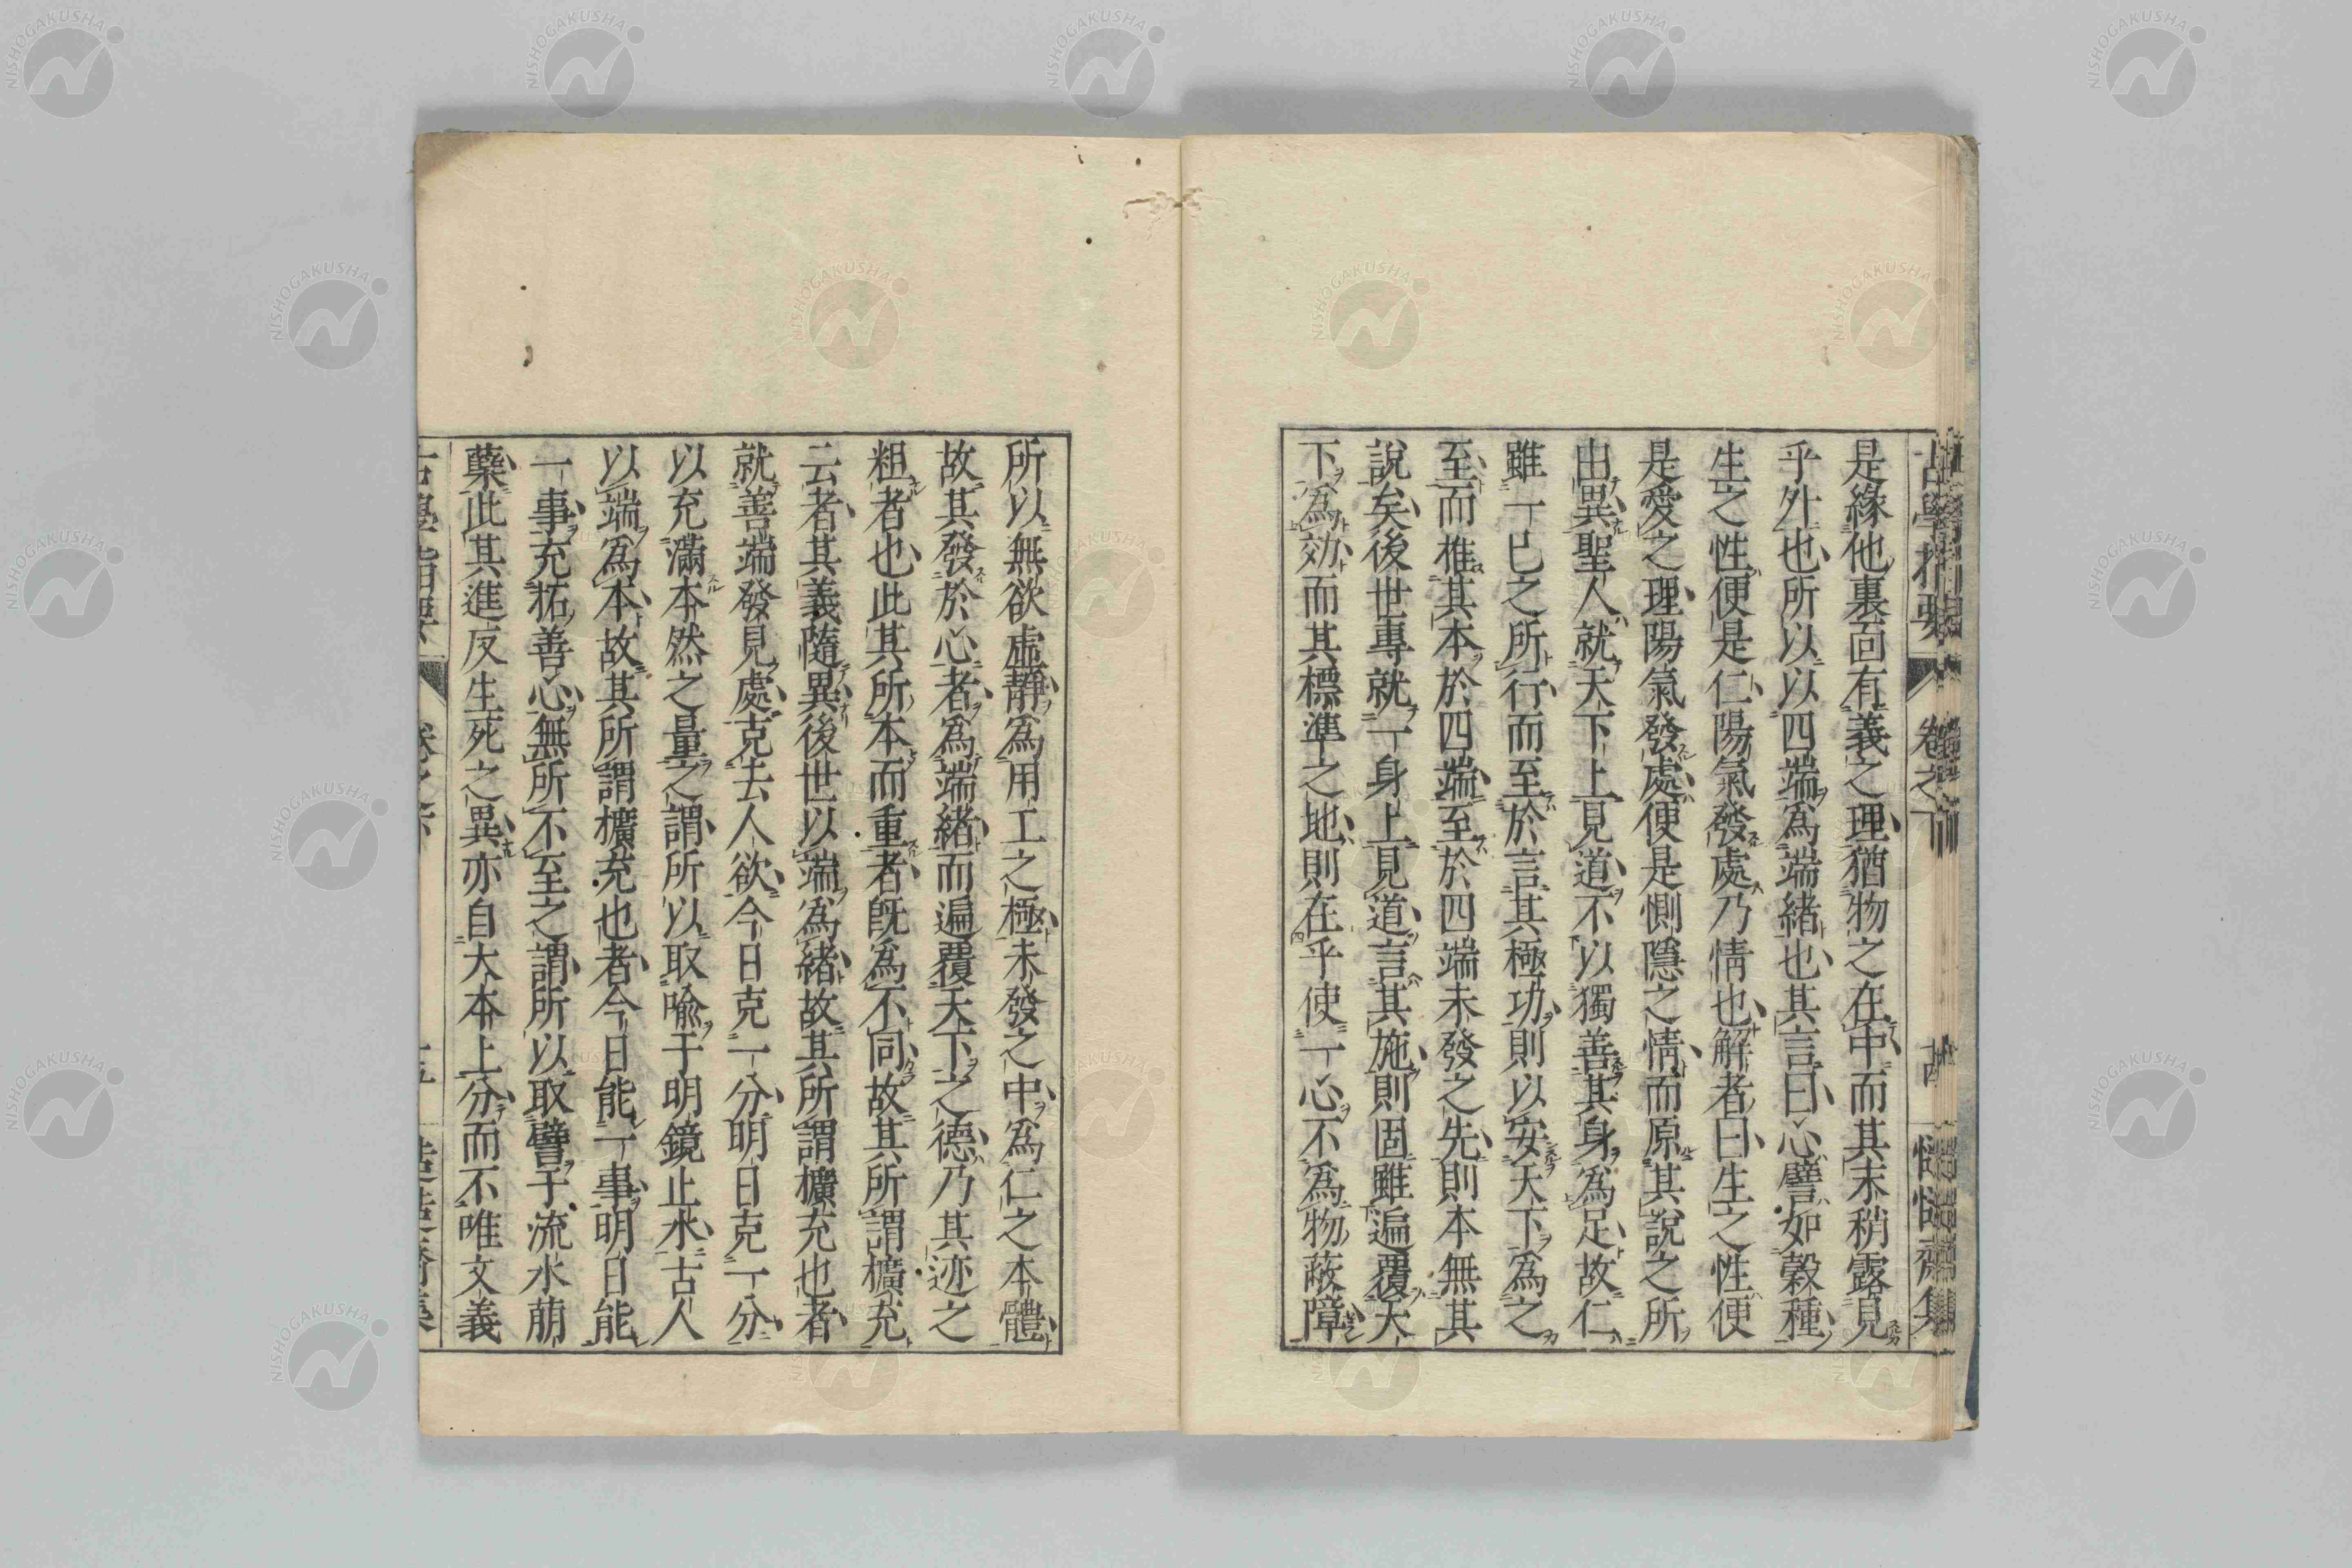 古學指要 卷之下 慥慥齋集
是緣他裏面有義之理猶物之在中而其末稍露見
乎外也所以以四端爲端緒也其言曰心譬如穀種
生之性便是仁陽氣發處乃情也解者曰生之性便
是愛之理陽氣發處便是惻隱之情而原其說之所
出異聖人就天下上見道不以獨善其身爲足故仁
雖一已之所行而至於言其極功則以安天下爲之
至而椎其本於四端至於四端未發之先則本無其
說矣後世專就一身上見道言其施則固雖遍覆天
下爲効而其標準之地則在乎使一心不爲物蔽障
所以無欲虛靜爲用工之極未發之中爲仁之本體
故其發於心者爲端緒而遍覆天下之德乃其迹之
粗者也此其所本而重者旣爲不同故其所謂擴充
云者其義隨異後世以端爲緒故其所謂擴充也者
就善端發見處克去人欲今日克一分明日克一分
以充滿本然之量之謂所以取喩于明鏡止水古人
以端爲本故其所謂擴充也者今日能一事明日能
一事充拓善心無所不至之謂所以取譬于流水萠
蘖此其進反生死之異亦自大本上分而不唯文義
NISHOGAKUSHA